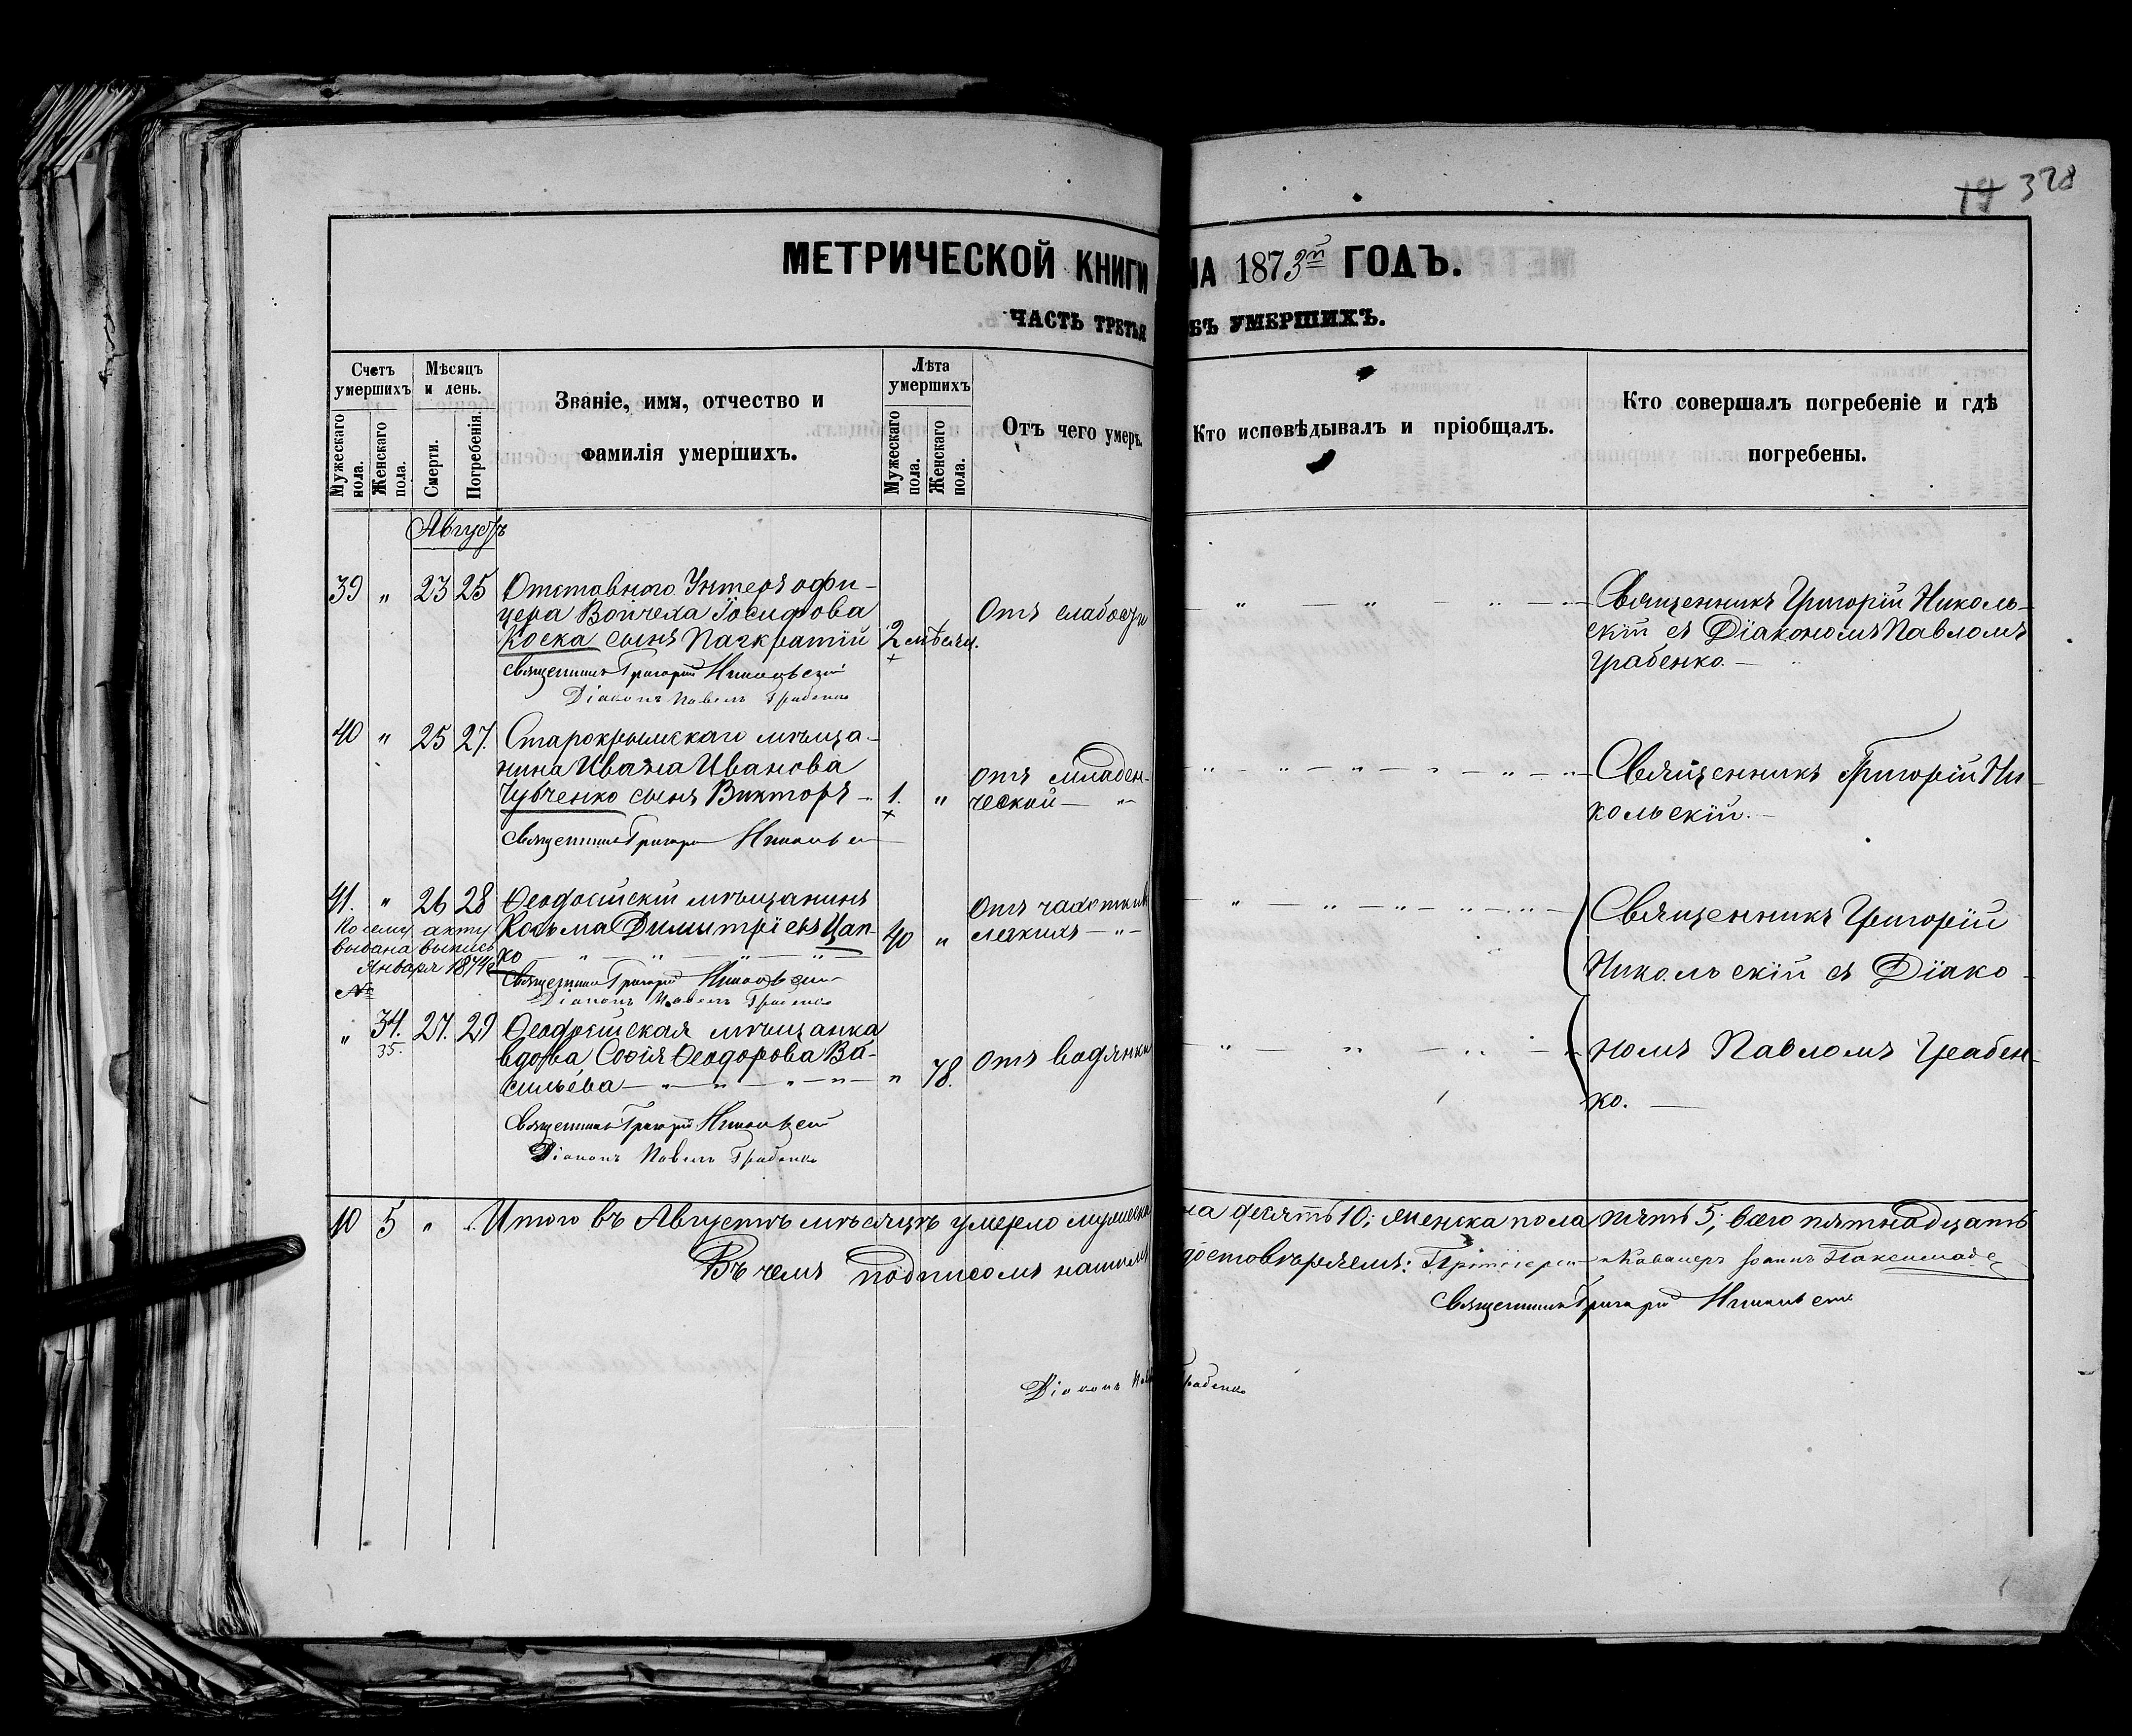 19 328
МЕТРИЧЕСКОЙ КНИГИ НА 1873й ГОДЪ.
ЧАСТЬ ТРЕТЬЯ БЪ УМЕРШИХЪ.
Счетъ умершихъ
Мѣсяцъ и день.
Званіе, имя, отчество и фамилія умершихъ.
Лѣта умершихъ
Отъ чего умеръ.
Кто исповѣдывалъ и пріобщалъ.
Кто совершалъ погребеніе и гдѣ погребены.
Мужескаго пола.
Женскаго пола.
Смерти.
Погребенія.
Мужескаго пола.
Женскаго пола.
Августъ
39 " 23 25 Отставного Унтеръ офи-
цера Войчеха Іосифова
Коска сынъ Панкратій 2 мѣсяц.
Отъ слабости
Священникъ Григорій Николь-
скій съ Діакономъ Павломъ
Грабенко.
Священникъ Григорій Никольскій
Діаконъ Павелъ Грабенко
40 " 25 27. Старокрымскаго мѣща-
нина Ивана Иванова
Чубченко сынъ Викторъ 1. "
Отъ младен-
ческой "
Священникъ Григорій Ни-
кольскій.
Священникъ Григорій Никольскій
41. " 26 28 Ѳеодосійскій мѣщанинъ
Косьма Димитріевъ Цап-
ко
40 "
Отъ чахотки
легкихъ "
По сему акту
выдана выпись
Января 1874
№
Священникъ Григорій Никольскій
Діаконъ Павелъ Грабенко
Священникъ Григорій
Никольскій съ Діако-
номъ Павломъ Грабен-
ко.
" 34. 27. 29 Ѳеодосійская мѣщанка
35.
вдова Софія Ѳеодорова Ва-
сильева " 78.
Отъ водянки
Священникъ Григорій Никольскій
Діаконъ Павелъ Грабенко
10 5 " Итого въ Августѣ мѣсяцѣ умерло мужеска пола десять 10; женска пола пять 5; всего пятнадцать
Въ чемъ подписомъ нашимъ удостовѣряемъ: Протоіерей и Кавалеръ Іоаннъ
Священникъ Григорій Никольскій
Діаконъ Павелъ Грабенко